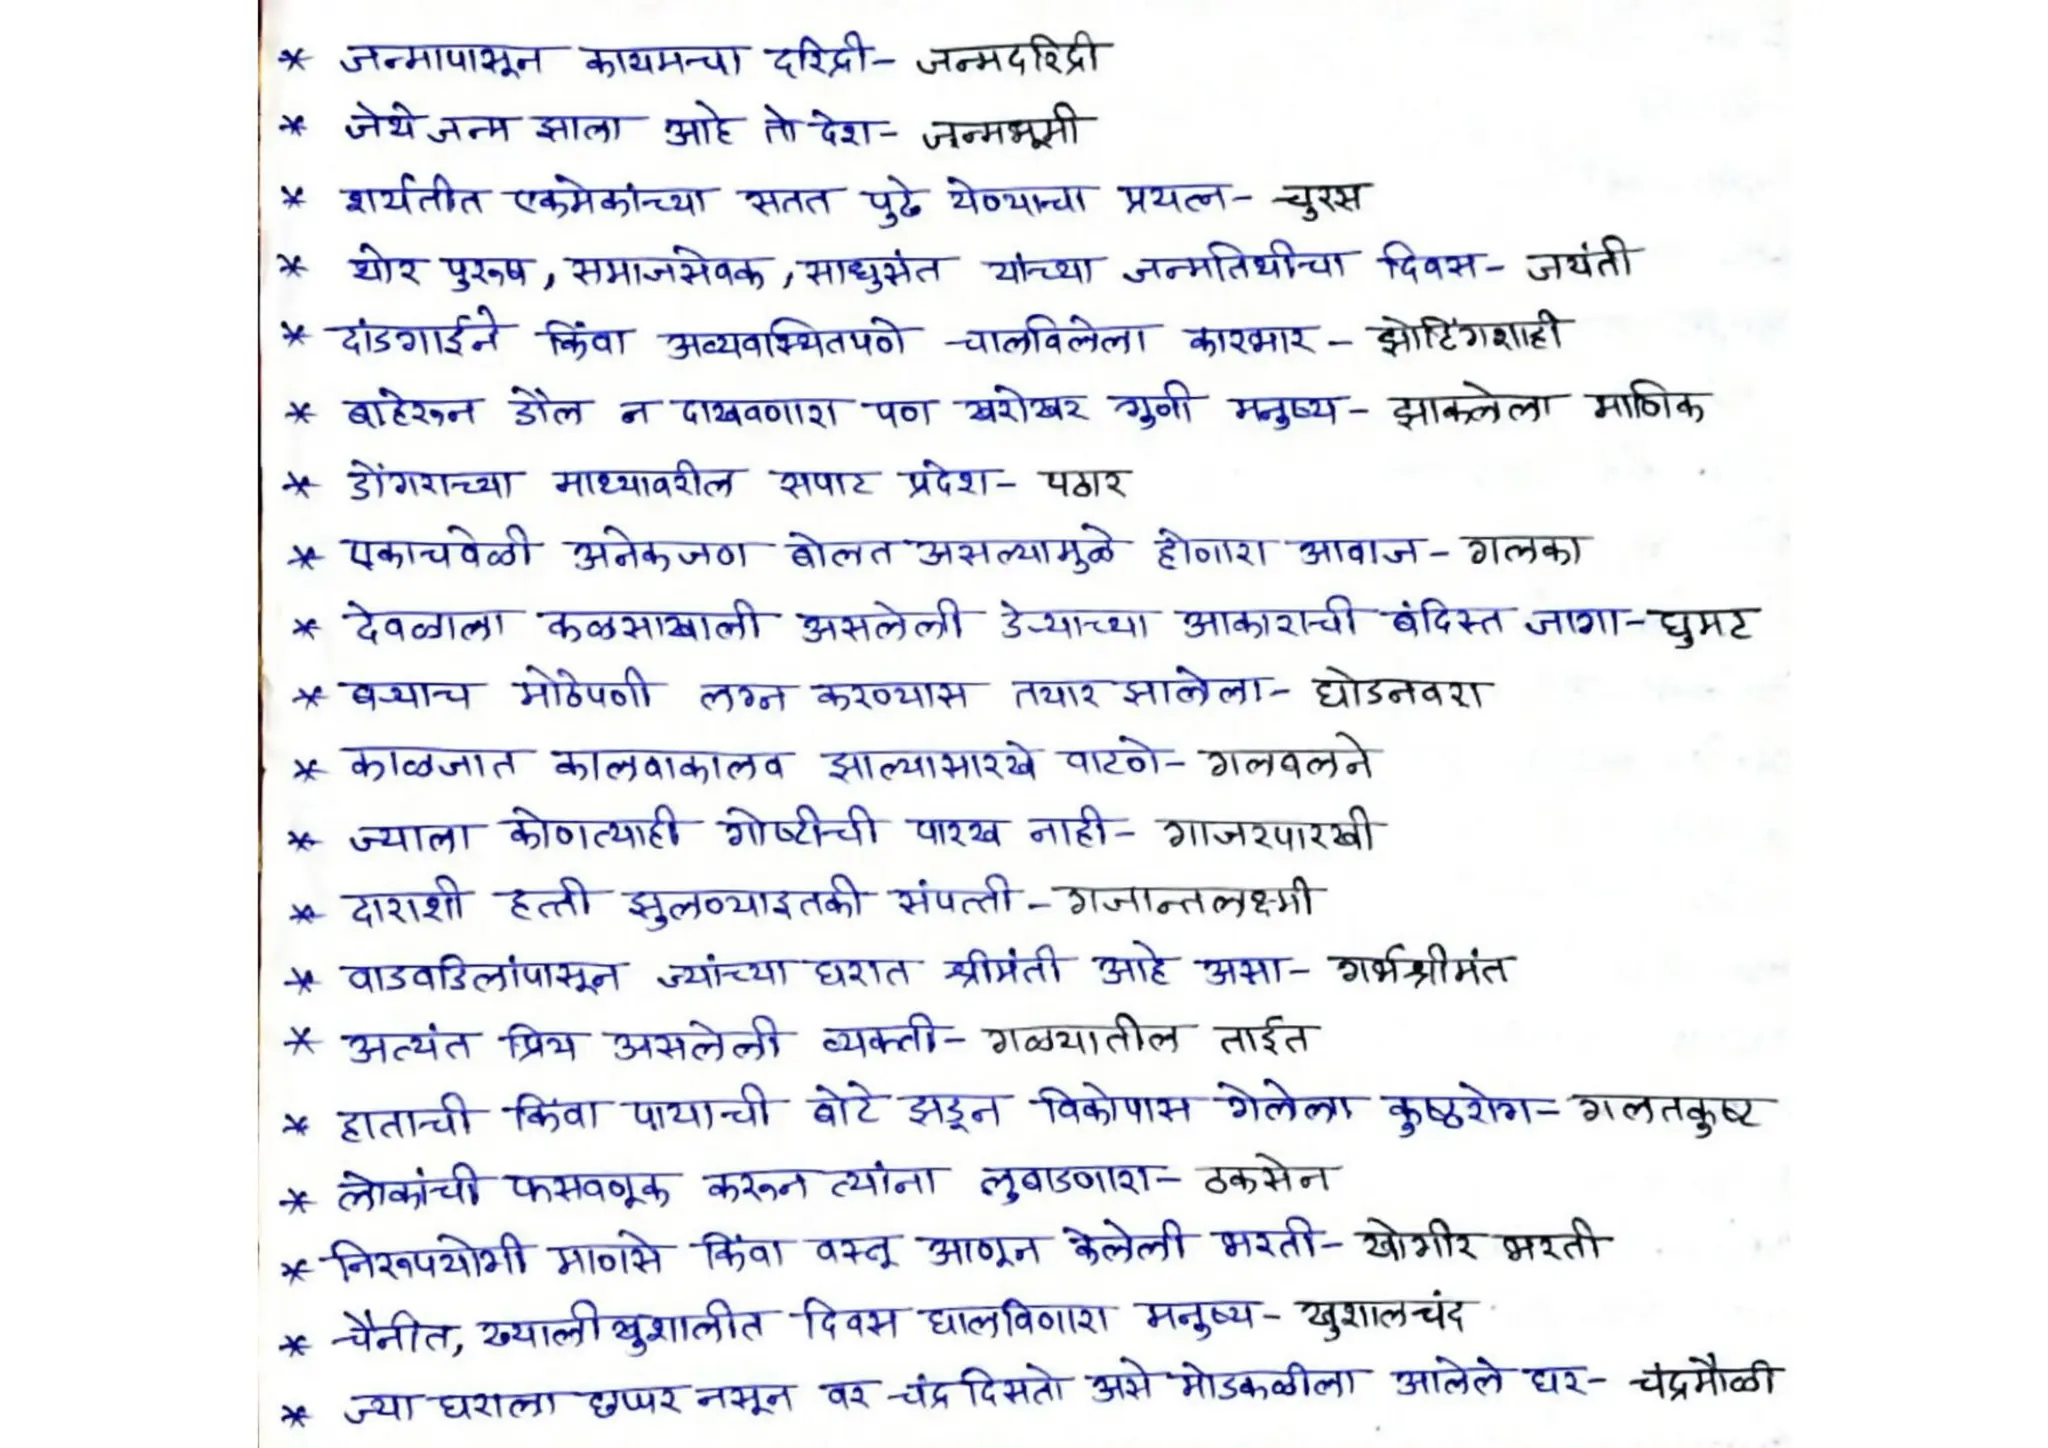 * जन्मापासून कायमचा दरिद्री- जन्मदरिद्री
* जेथे जन्म झाला आहे तो देश- जन्मभूमी
* शर्यतीत एकमेकांच्या सतत पुढे येण्याचा प्रयत्न- चुरस
* थोर पुरुष, समाजसेवक, साधुसंत यांच्या जन्मतिथीचा दिवस- जयंती
* दांडगाईने किंवा अव्यवस्थितपणे चालविलेला कारभार- झोटिंगशाही
* बाहेरून डौल न दाखवणारा पण खरोखर गुणी मनुष्य- झाकलेला माणिक
* डोंगराच्या माथ्यावरील सपाट प्रदेश- पठार
* एकाचवेळी अनेकजण बोलत असल्यामुळे होणारा आवाज- गलका
* देवळाला कळसाखाली असलेली डेऱ्याच्या आकाराची बंदिस्त जागा- घुमट
* बऱ्याच मोठेपणी लग्न करण्यास तयार झालेला- घोडनवरा
* काळजात कालवाकालव झाल्यासारखे वाटणे- गलबलने
* ज्याला कोणत्याही गोष्टीची पारख नाही- गाजरपारखी
* दाराशी हत्ती झुलण्याइतकी संपत्ती- गजान्तलक्ष्मी
* वाडवडिलांपासून ज्यांच्या घरात श्रीमंती आहे असा- गर्भश्रीमंत
* अत्यंत प्रिय असलेली व्यक्ती- गळ्यातील ताईत
* हाताची किंवा पायाची बोटे झडून विकोपास गेलेला कुष्ठरोग- गलतकुष्ट
* लोकांची फसवणूक करून त्यांना लुबाडणारा- ठकसेन
* निरुपयोगी माणसे किंवा वस्तू आणून केलेली भरती- खोगीर भरती
* चैनीत, ख्यालीखुशालीत दिवस घालविणारा मनुष्य- खुशालचंद
* ज्या घराला छप्पर नसून वर चंद्र दिसतो असे मोडकळीला आलेले घर- चंद्रमौळी